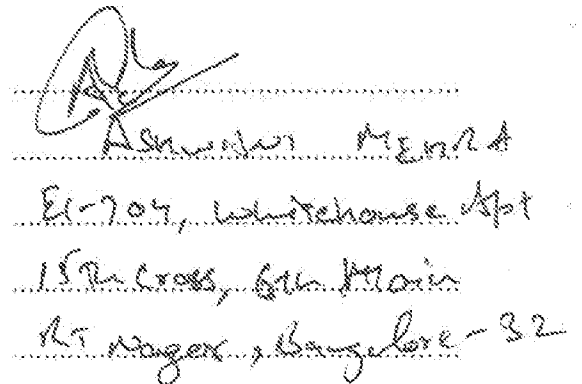 Ashwani MEHRA
E1-704, Whitehouse Apt
15Th Cross, 6th Main
RT Nagar, Bangalore - 32